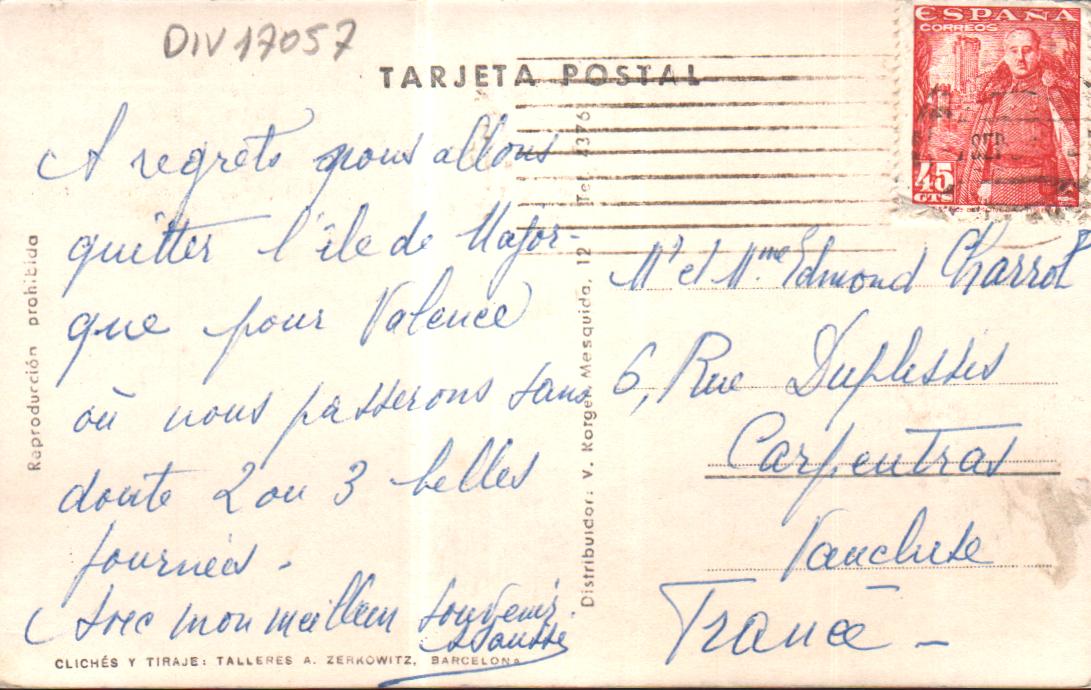 DIV 17057
TARJETA POSTAL
ESPAÑA
CORREOS
SEP
45
CTS
A regrets nous allons
quitter l'île de Major-
que pour Valence
où nous passerons sans
doute 2 ou 3 belles
journées -
Avec mon meilleur souvenir.
Mr et Mme Edmond Charrol
6, Rue Duplessis
Carpentras
Vaucluse
France -
Reproducción prohibida
Distribuidor: V. Korger, Mesquida, 12 Tel. 4376
CLICHÉS Y TIRAJE: TALLERES A. ZERKOWITZ, BARCELONA